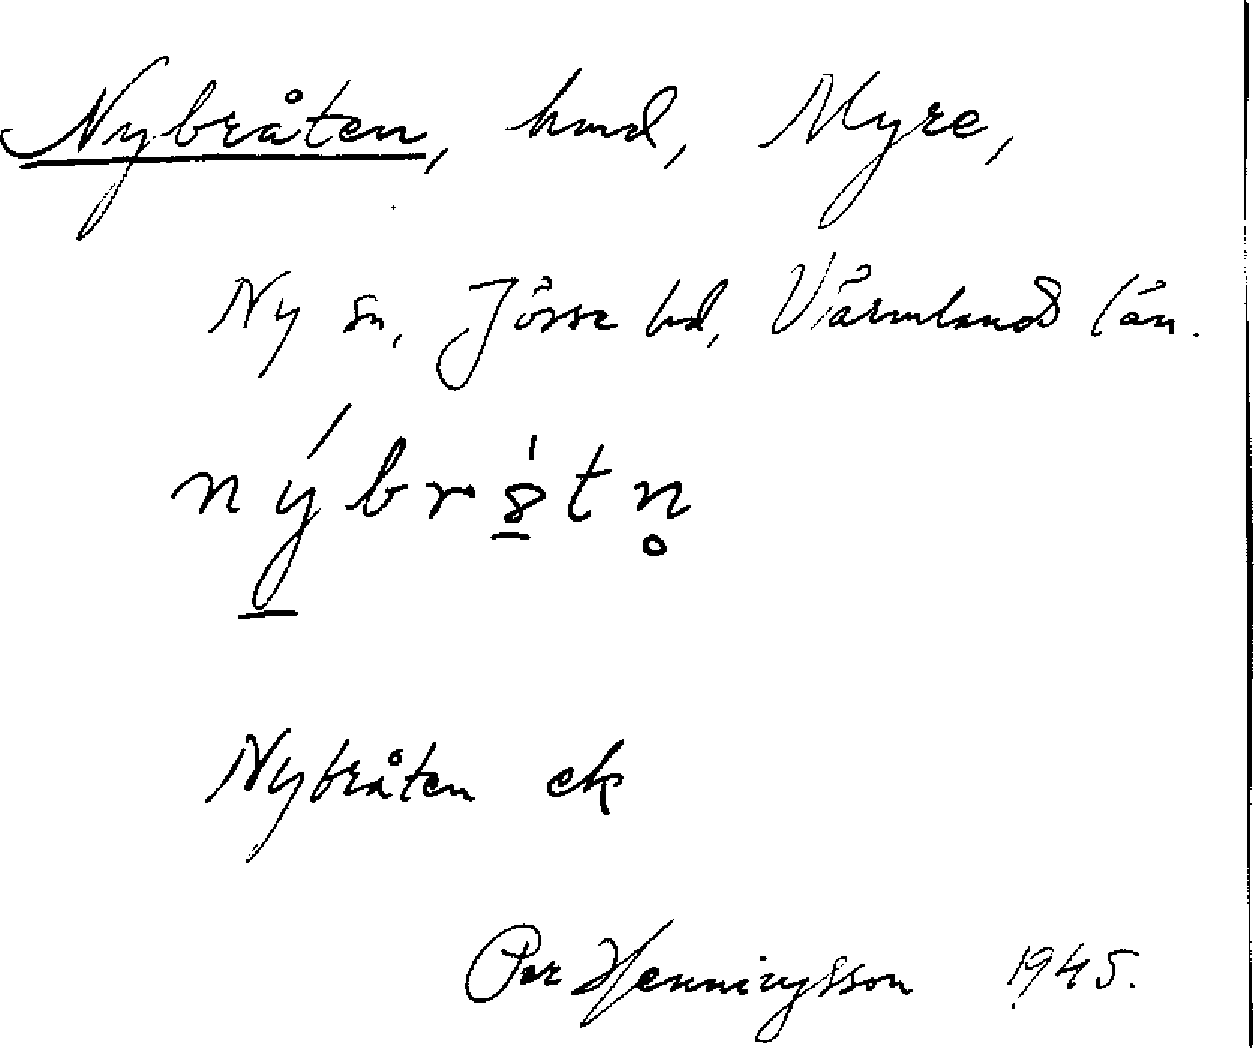 Nybråten, hmd, Myre,
Ny sn, Jösse hd, Värmlands län.
nýbrs̲̍tn̥
Nybråten ek
Per Henningsson 1945.